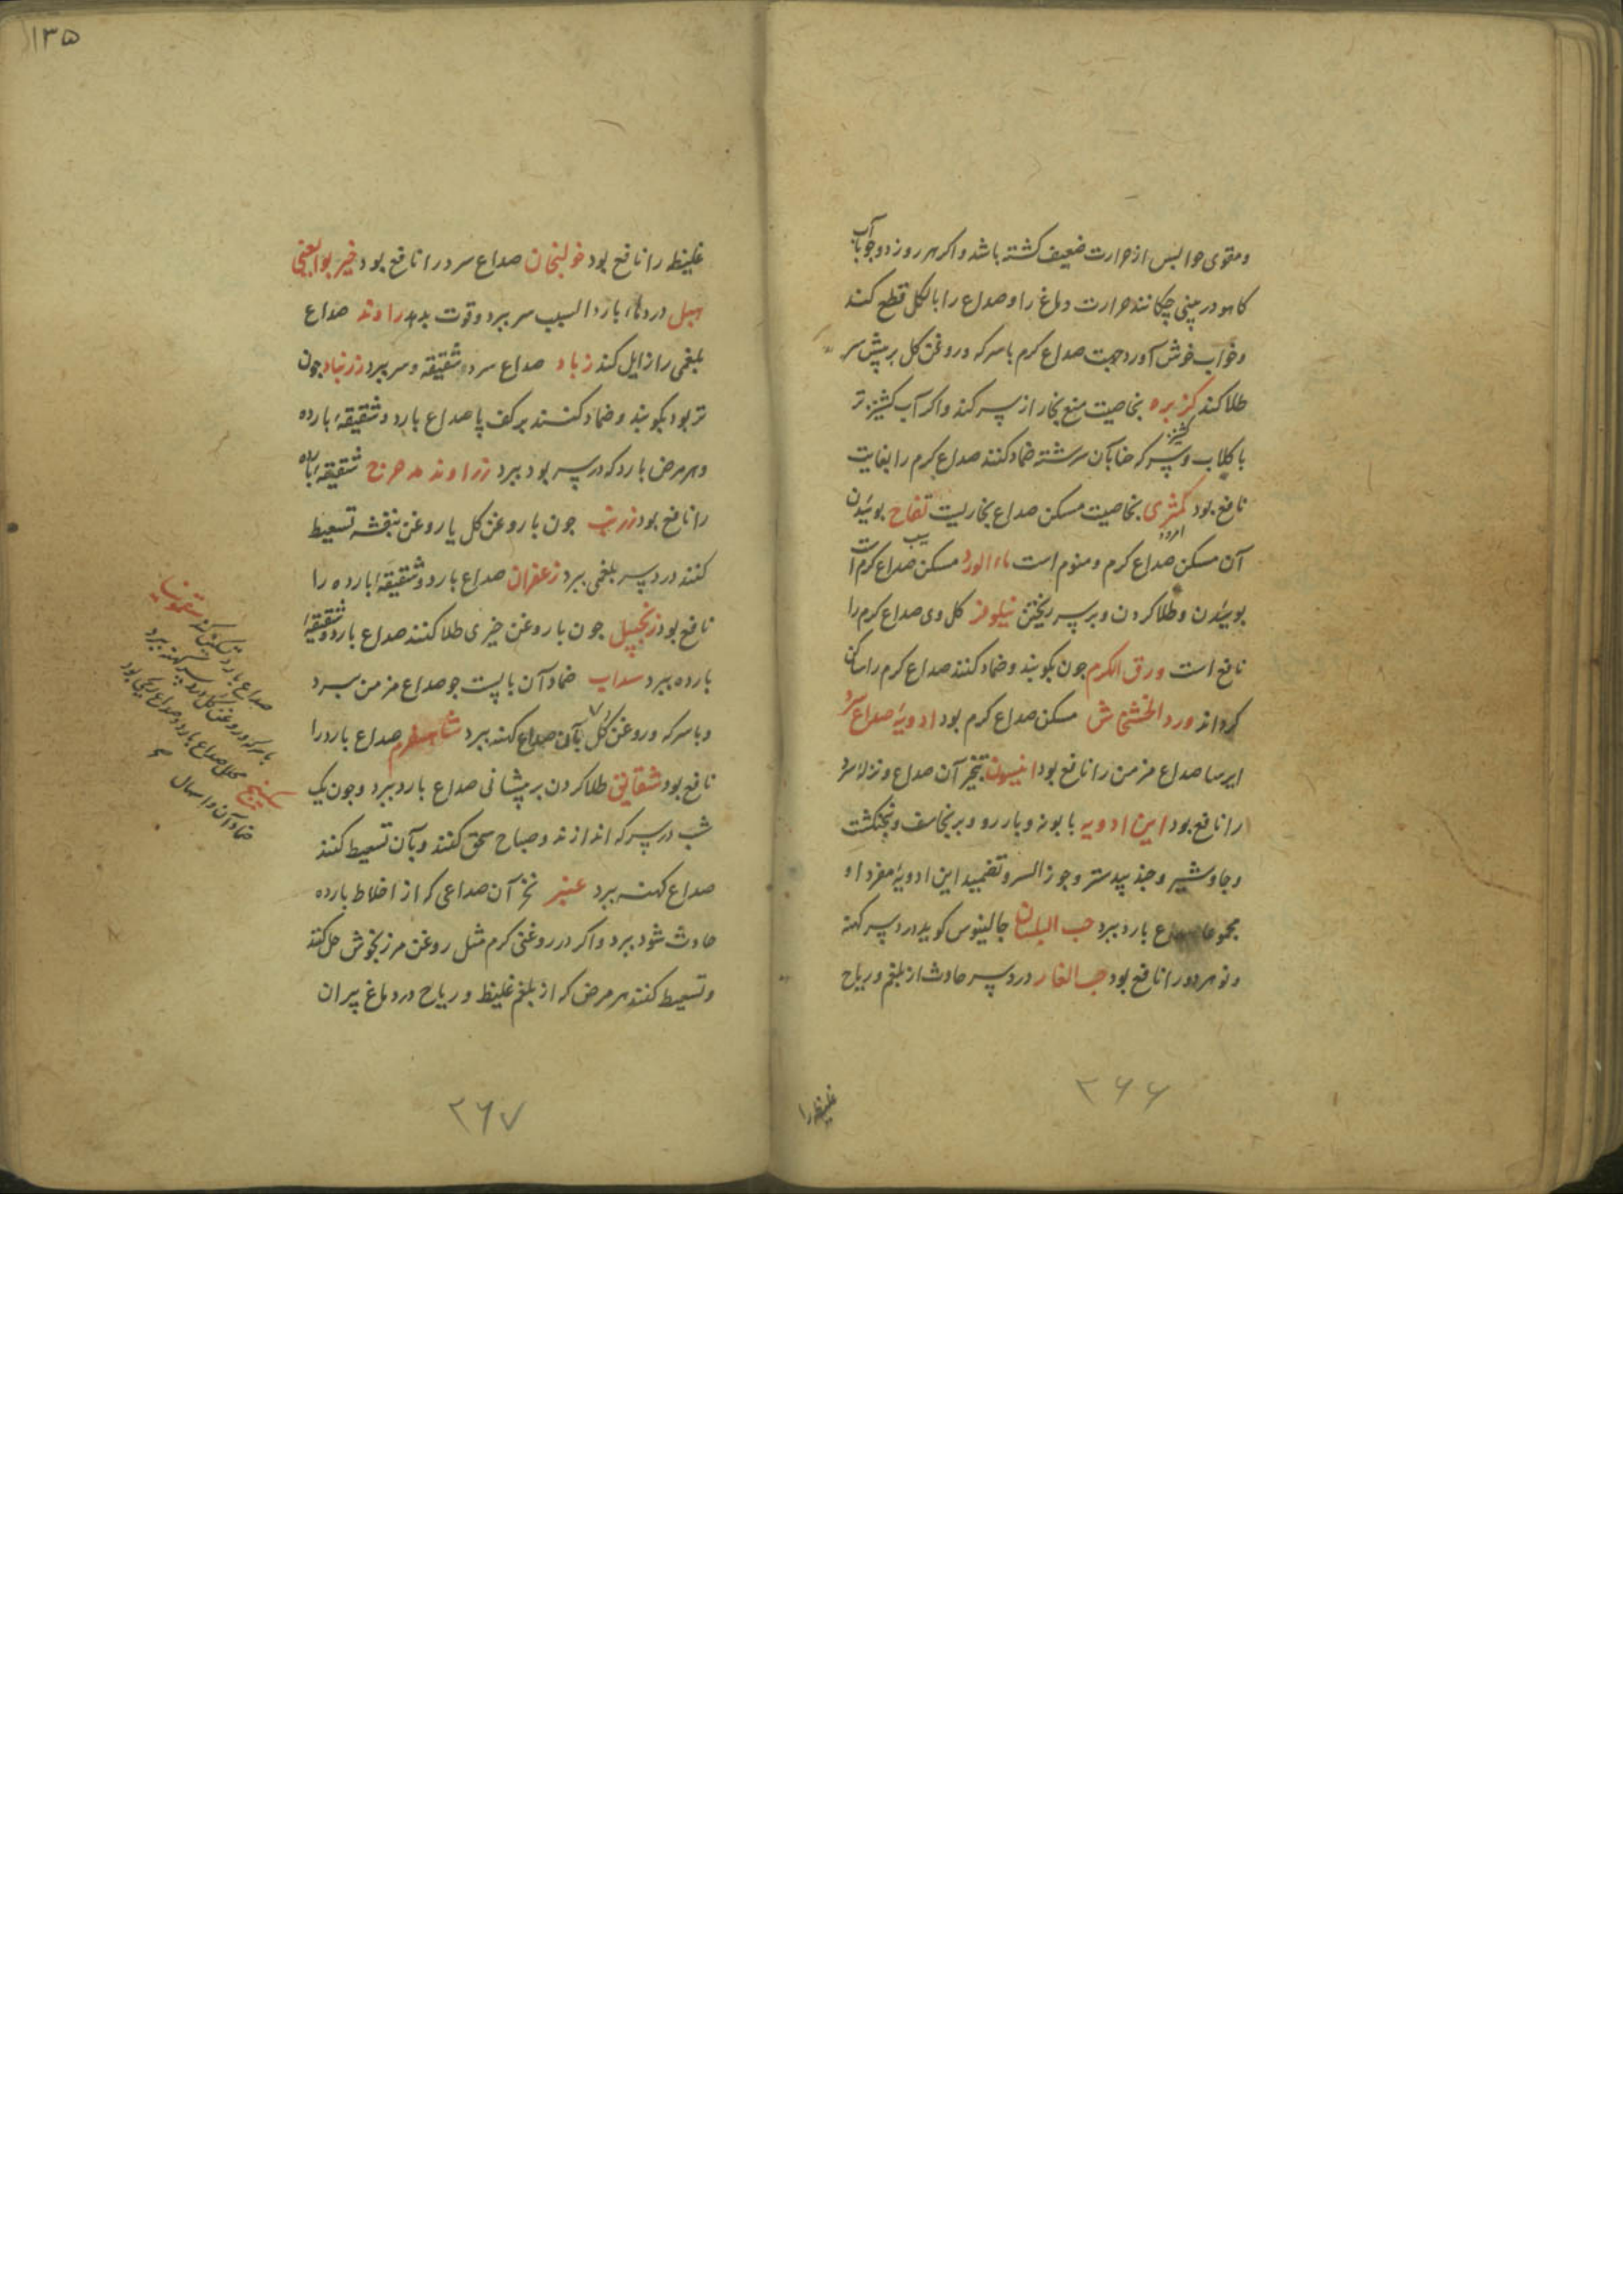 ومقوی حواسی از حرارت ضعیف کشته باشد واکر هر روز دو جو بآب
کاهو در بینی چکانند حرارت دماغ را وصداع را بالکل قطع کند
وخواب خوش آورد جهت صداع کرم با سرکه وروغن کل بر پیش سر
طلا کند کزبره بخاصیت منع بخار از سر کند واکر آب کشنیز تر
کشنیز
با کلاب وسرکه حنا بآن سرشته ضماد کنند صداع کرم را بغایت
نافع بود کمثری بخاصیت مسکن صداع بخاریست تفاح بوئیدن
امرود
سیب
آن مسکن صداع کرم ومنوم است ماء الورد مسکن صداع کرم است
بوئیدن وطلا کردن وبر سر ریختن نیلوفر کل وی صداع کرم را
نافع است ورق الکرم چون بکوبند وضماد کنند صداع کرم را ساکن
کرداند ورد الخشخاش مسکن صداع کرم بود ادویهٔ صداع سرد
ایرسا صداع مزمن را نافع بود انیسون تبخیر آن صداع ونزلهٔ سرد
را نافع بود این ادویه بابونه وبارزد وبرنجاسف وپنجنکشت
وجاوشیر وجندبیدستر وجوز السرو تضمید این ادویهٔ مفردا و
مجموعا صداع بارد ببرد حب البلسان جالینوس کوید درد سر کهنه
ونو هر دو را نافع بود حب الغار درد سر حادث از بلغم وریاح
غلیظ را
۲۶۶
۱۳۵
غلیظ را نافع بود خولنجان صداع سرد را نافع بود خیربوا یعنی
هیل دردهاء بارد السبب سر ببرد وقوت بدهد راوند صداع
بلغمی را زایل کند زباد صداع سرد وشقیقه وسر ببرد زرنباد چون
تر بود بکوبند وضماد کنند بر کف پا صداع بارد وشقیقهٔ بارده
وهر مرض بارد که در سر بود ببرد زراوند مدحرج شقیقهٔ بارده
را نافع بود زرنب چون با روغن کل یا روغن بنفشه تسعیط
کنند درد سر بلغمی ببرد زعفران صداع بارد وشقیقهٔ بارده را
نافع بود زنجبیل چون با روغن خیری طلا کنند صداع بارد وشقیقهٔ
بارده ببرد سداب ضماد آن با پست جو صداع مزمن ببرد
وبا سرکه وروغن کل بآن صداع کهنه ببرد شاهسفرم صداع بارد را
نافع بود شقایق طلا کردن بر پیشانی صداع بارد ببرد وچون یک
شب در سرکه اندازند وصباح سحق کنند وبآن تسعیط کنند
صداع کهنه ببرد عنبر بخر آن صداعی که از اخلاط بارده
حادث شود ببرد واکر در روغنی کرم مثل روغن مرزنجوش حل کنند
وتسعیط کنند هر مرض که از بلغم غلیظ وریاح در دماغ پیران
سقمونیا
صداع بارد تسکین کند
با سرکه وروغن کل درد سر کهنه ببرد
سکبینج محلل صداع بارد وصداع ریحی بود
ضماد آن واسهال
۲۶۷